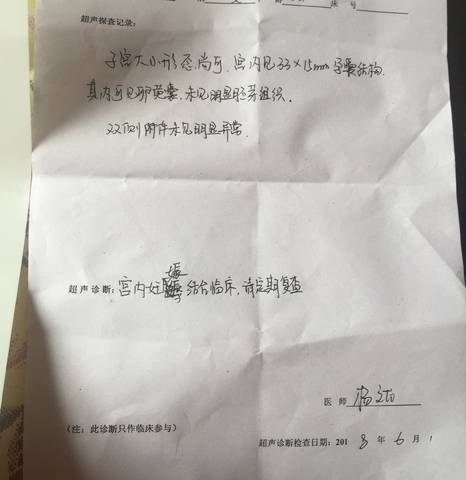 床 号
超声探查记录:
子宫大小形态尚可,宫内见33×15mm孕囊结构.
其内可见卵黄囊,未见明显胚芽组织.
双侧附件未见明显异常.
超声诊断:宫内妊娠 结合临床,请定期复查
医 师
(注:此诊断只作临床参与)
超声诊断检查日期:2018年6月1